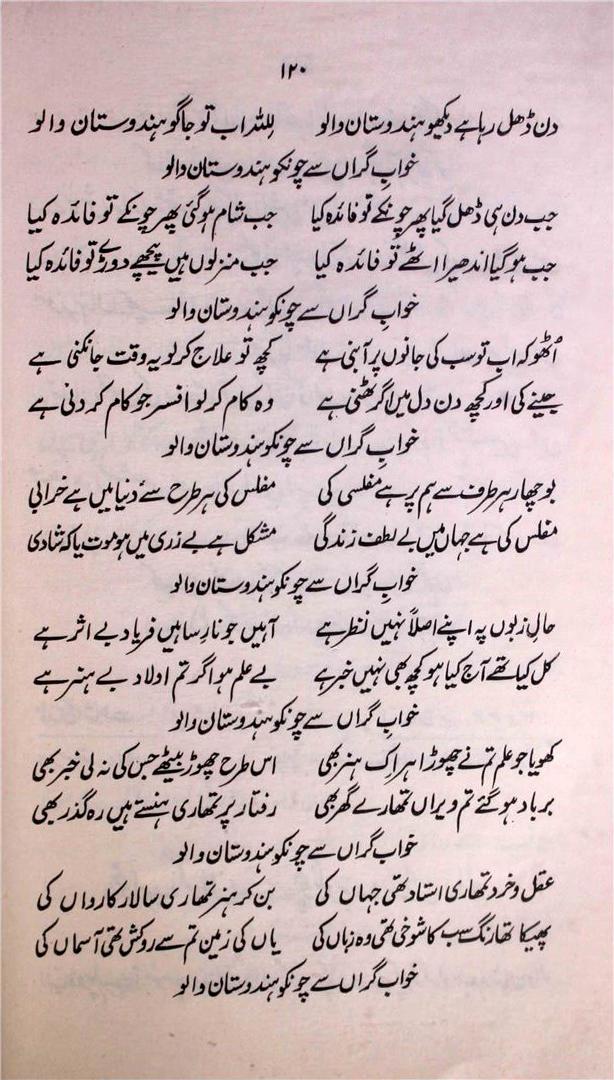 ۱۲۰
دن ڈھل رہا ہے دیکھو ہندوستان والو للہ اب تو جاگو ہندوستان والو
خوابِ گراں سے چونکو ہندوستان والو
جب دن ہی ڈھل گیا پھر چونکے تو فائدہ کیا جب شام ہو گئی پھر چونکے تو فائدہ کیا
جب ہو گیا اندھیرا اٹھے تو فائدہ کیا جب منزلوں ہیں پیچھے دوڑے تو فائدہ کیا
خوابِ گراں سے چونکو ہندوستان والو
اُٹھو کہ اب تو سب کی جانوں پر آ بنی ہے کچھ تو علاج کر لو یہ وقت جانکنی ہے
جینے کی اور کچھ دن دل میں اگر ٹھنی ہے وہ کام کر لو افسر جو کام کردنی ہے
خوابِ گراں سے چونکو ہندوستان والو
بوچھار ہر طرف سے ہم پر ہے مفلسی کی مفلس کی ہر طرح سے دنیا میں ہے خرابی
مفلس کی ہے جہاں میں بے لطف زندگی مشکل ہے بے زری میں ہو موت یا کہ شادی
خوابِ گراں سے چونکو ہندوستان والو
حالِ زبوں پہ اپنے اصلاً نہیں نظر ہے آہیں جو نارسا ہیں فریاد بے اثر ہے
کل کیا تھے آج کیا ہو کچھ بھی نہیں خبر ہے بے علم ہو اگر تم اولاد بے ہنر ہے
خوابِ گراں سے چونکو ہندوستان والو
کھویا جو علم تم نے چھوڑا ہر اِک ہنر بھی اس طرح چھوڑ بیٹھے جس کی نہ لی خبر بھی
برباد ہو گئے تم ویراں تمھارے گھر بھی رفتار پر تمھاری ہنستے ہیں رہ گذر بھی
خواب گراں سے چونکو ہندوستان والو
عقل و خرد تمھاری استاد تھی جہاں کی بن کر ہنر تمھاری سالار کارواں کی
پھیکا تھا رنگ سب کا شوخی تھی وہ زباں کی یاں کی زمین تم سے روکش تھی آسماں کی
خواب گراں سے چونکو ہندوستان والو